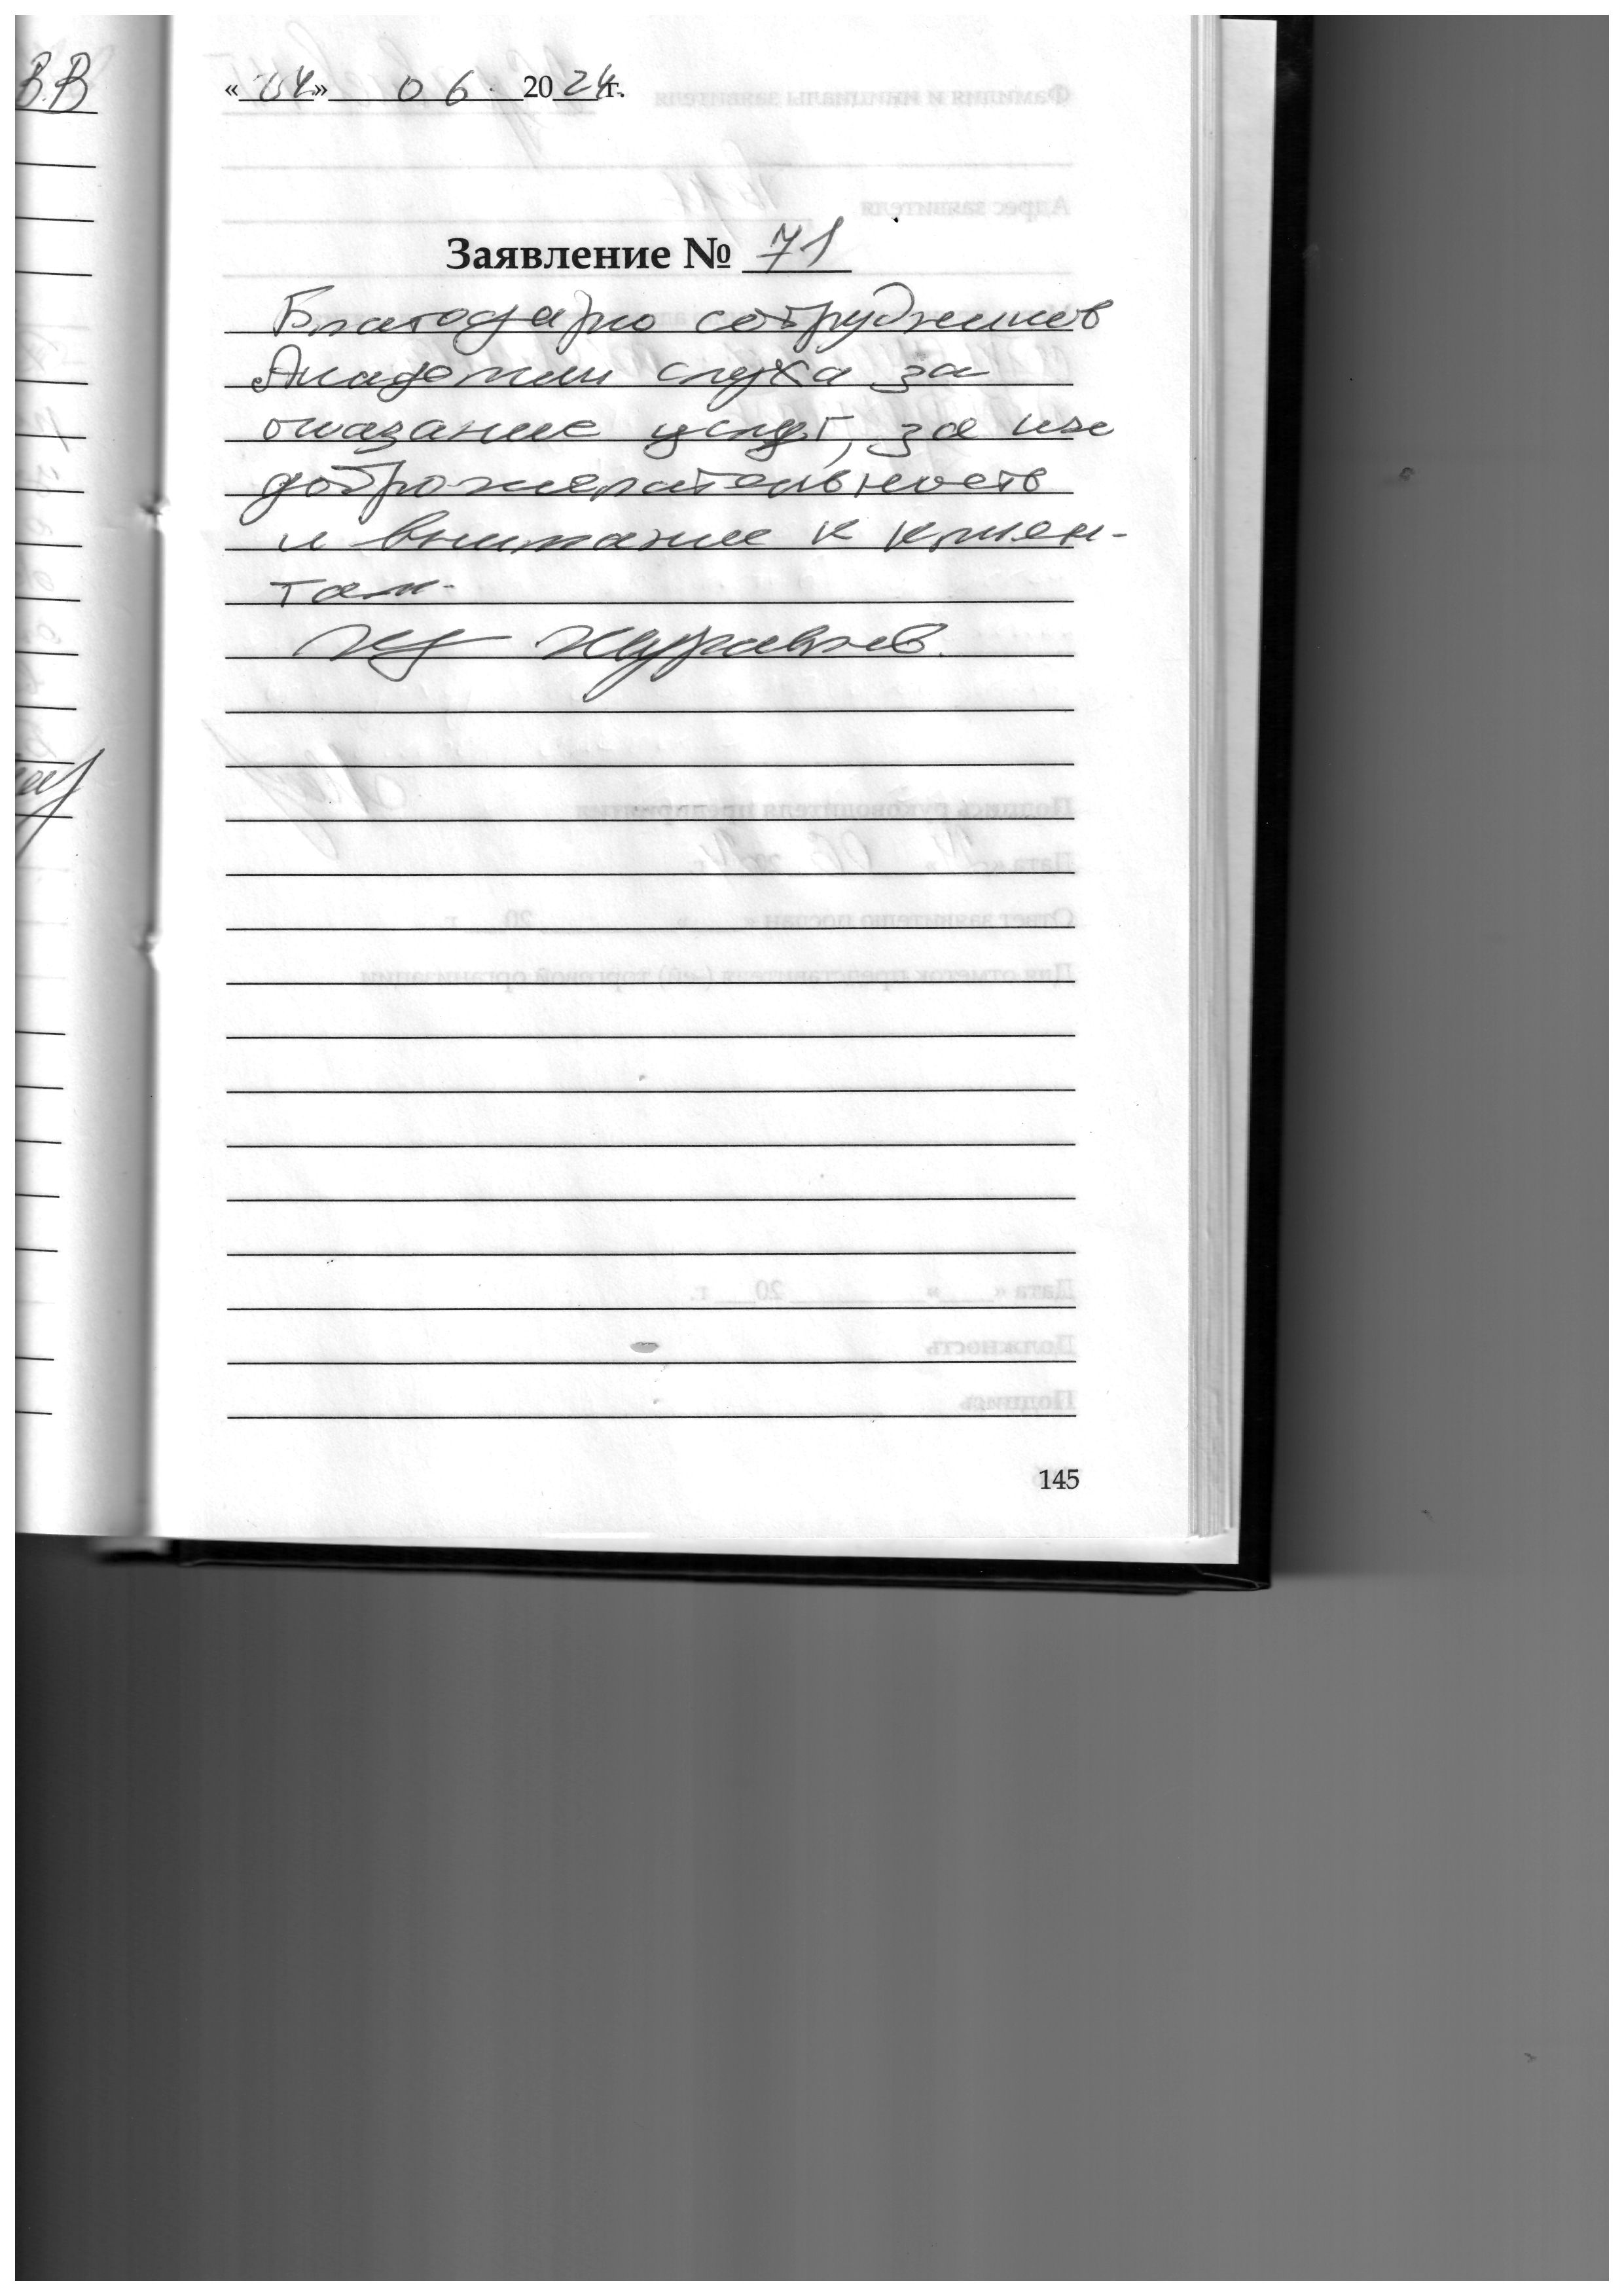 В.В
«04» 06. 2024г.
Заявление № 71
Благодарю сотрудников
Академии слуха за
оказание услуг, за их
доброжелательность
и внимание к клиен-
там.
Журавлев.
145